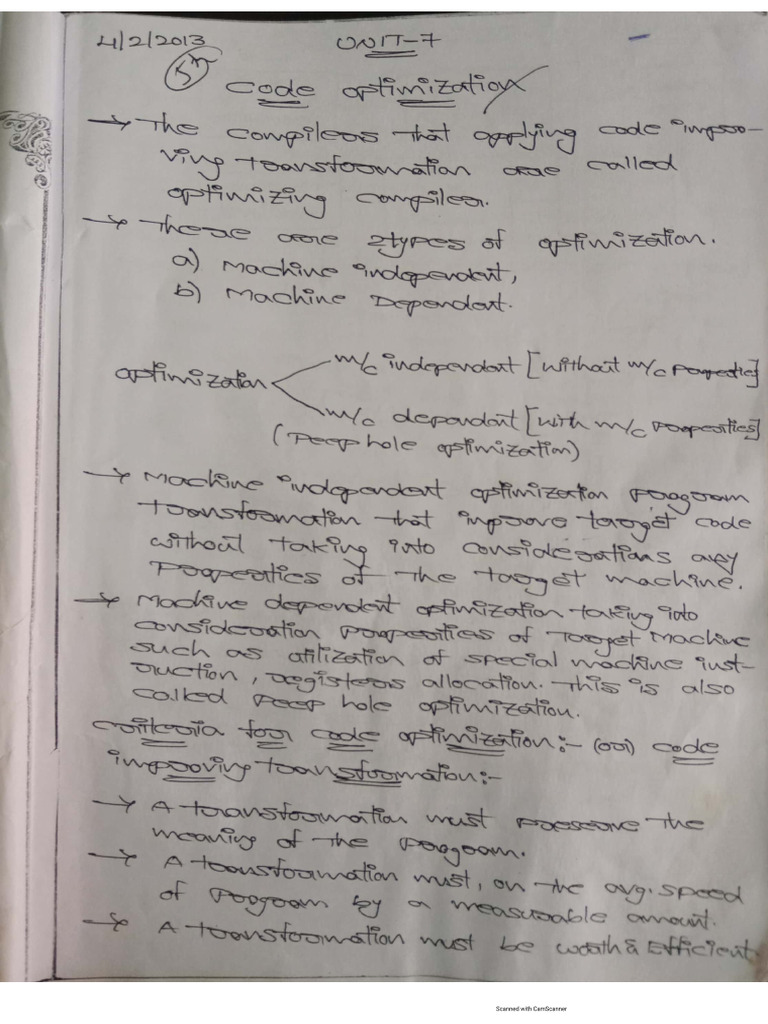 4/2/2013 UNIT-7
5m
Code optimization
→ The compilers that applying code impro-
ving transformation are called
optimizing compiler.
→ There are 2types of optimization.
a) Machine independent,
b) Machine Dependent.
optimization m/c independent [without m/c properties]
m/c dependent [with m/c properties]
(Peep hole optimization)
→ Machine independent optimization program
transformation that improve target code
without taking into considerations any
properties of the target machine.
→ Machine dependent optimization taking into
consideration properties of Target Machine
such as utilization of special machine inst-
ruction, registers allocation. This is also
called peep hole optimization.
criteria for code optimization:- (or) code
improving transformation:-
→ A transformation must preserve the
meaning of the program.
→ A transformation must, on the avg. speed
of program by a measurable amount.
→ A transformation must be worth & Efficient.
Scanned with CamScanner